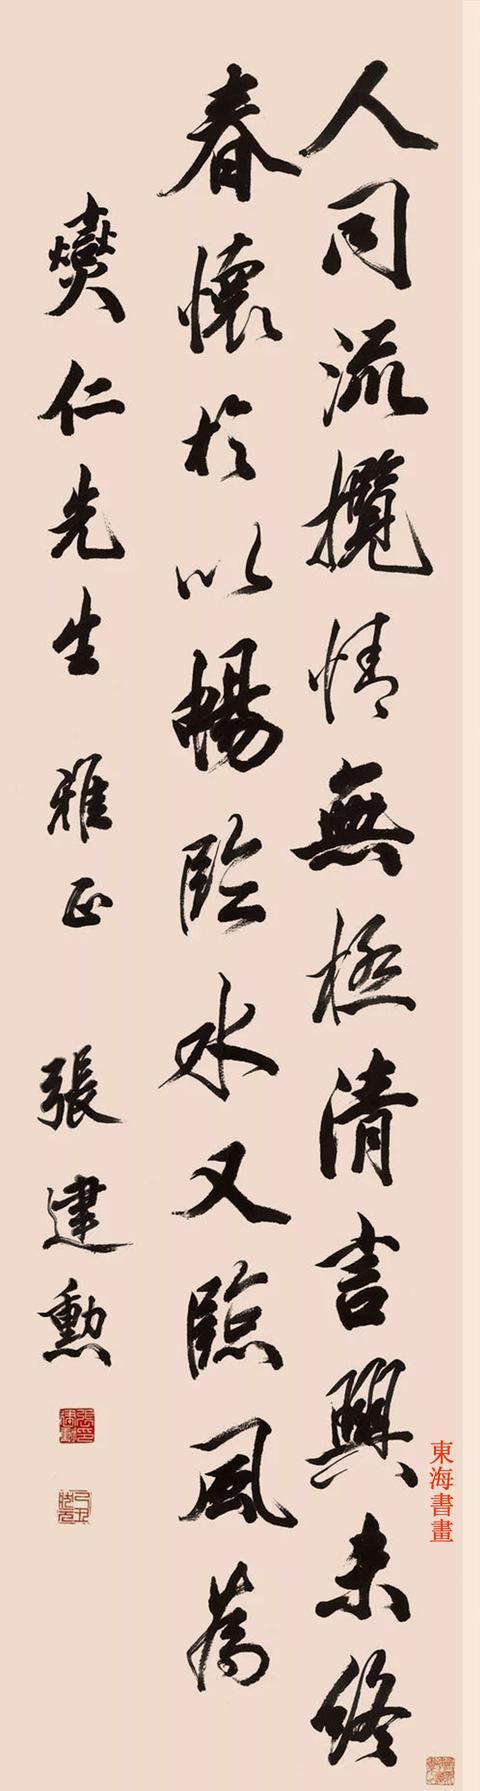 人同流攬情無極清言興未終
春懷於以暢臨水又臨風為
燮仁先生 雅正 張建勳
東海書畫